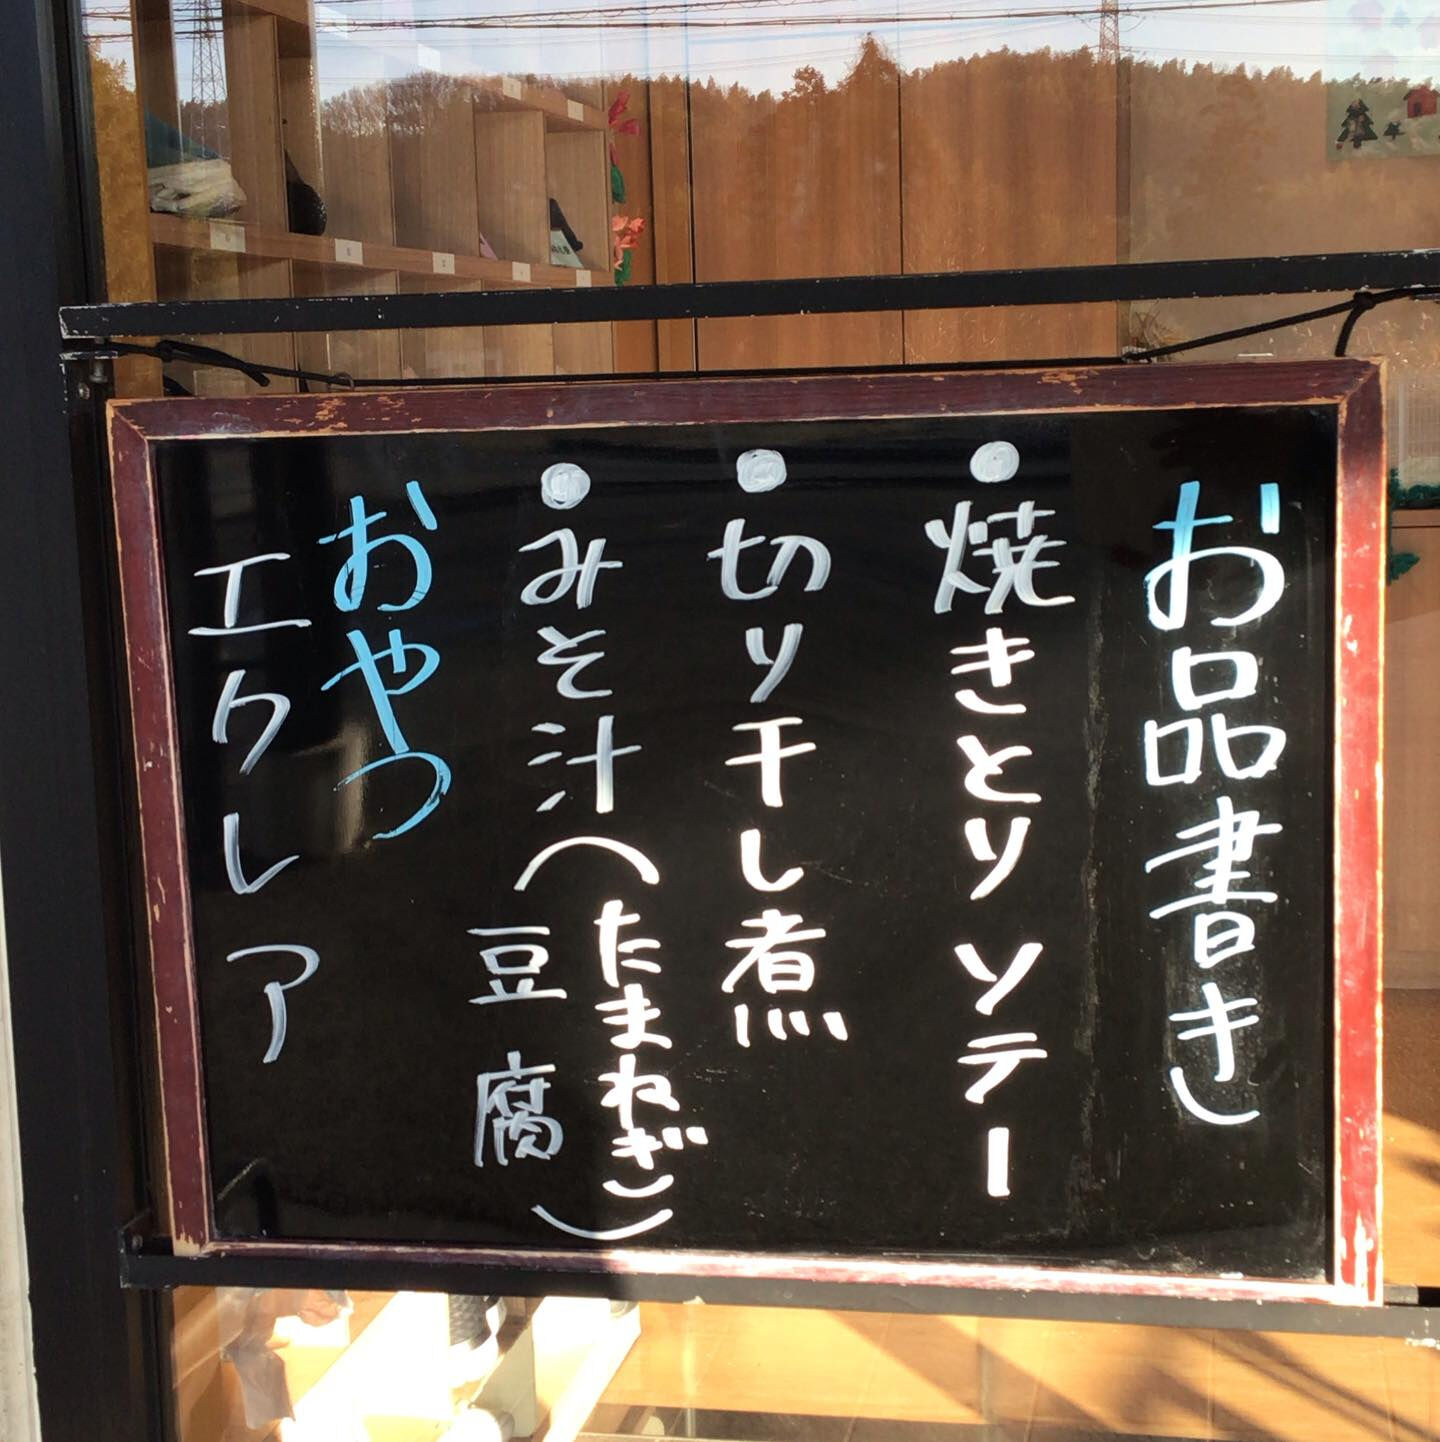 お品書き
●焼きとりソテー
●切り干し煮
●みそ汁(たまねぎ
豆腐)
おやつ
エクレア